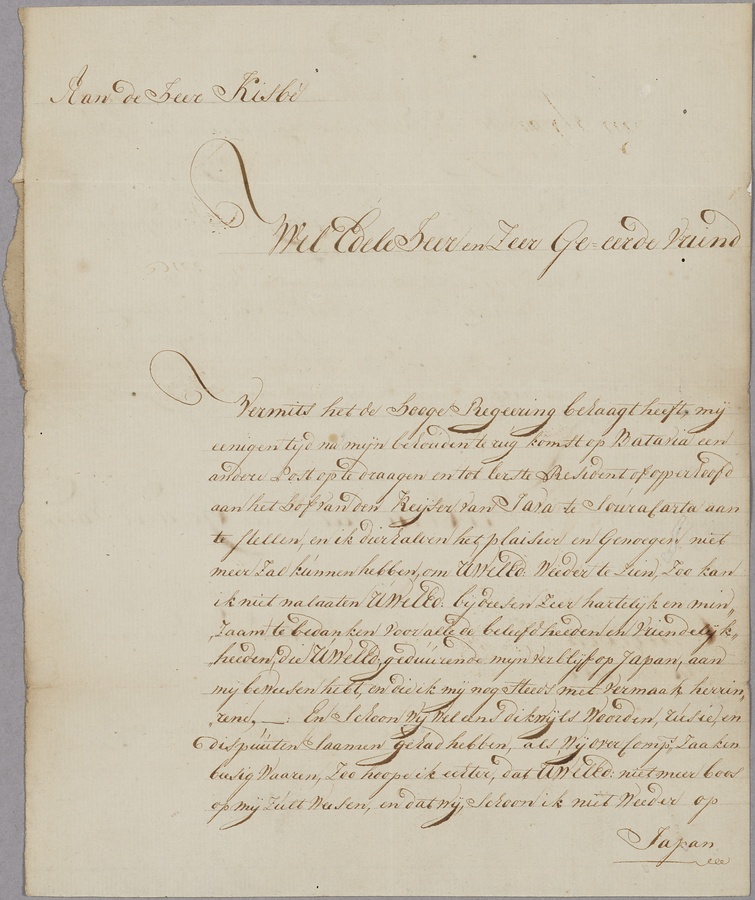 Aan de Heer Kisbé
Wel Edele Heer en Zeer Ge=eerde Vriend
Vermits het de Hooge Regeering behaagt heeft, mij
eenigen tijd na mijn behouden te rug komst op Batavia een
andere Post op te draagen en tot eerste Resident of opperhoofd
aan het Hof van den Keijser van Java te Souracarta aan
te stellen, en ik dierhalven het plaisier en Genoegen niet
meer Zal kunnen hebben, om UWelEd: Weeder te Zien, Zoo kan
ik niet nalaaten UWelEd: bij deesen Zeer hartelijk en min„
„Zaam te bedanken Voor alle de beleefdheeden en Vriendelijk„
„heeden, die UWelEd: geduurende mijn verblijf op Japan, aan
mij beweesen hebt, en die ik mij nog steeds met Vermaak herrin„
„rene, —: En Schoon Wij Wel eens dikwijls Woorden, rusie, en
dispuuten Saamen gehad hebben, als Wij over Comps, Zaaken
besig Waaren, Zoo hoope ik echter, dat UWelEd: niet meer boos
op mij Zult Weesen, en dat wij, Schoon ik niet Weeder op
Japan